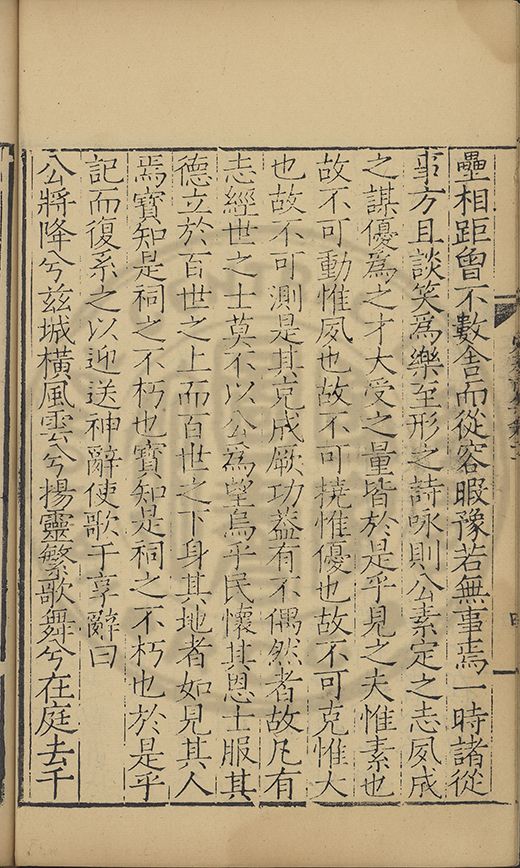 壘相距曾不數舍而從容暇豫若無事焉一時諸從
事方且談笑爲樂至形之詩咏則公素定之志夙成
之謀優爲之才大受之量皆於是乎見之夫惟素也
故不可動惟夙也故不可撓惟優也故不可克惟大
也故不可測是其克成厥功蓋有不偶然者故凡有
志經世之士莫不以公爲望焉乎民懷其恩士服其
德立於百世之上而百世之下身其地者如見其人
焉寶知是祠之不朽也寶知是祠之不朽也於是乎
記而復系之以迎送神辭使歌于享辭曰
公將降兮兹城橫風雲兮揚靈繁歌舞兮在庭去千